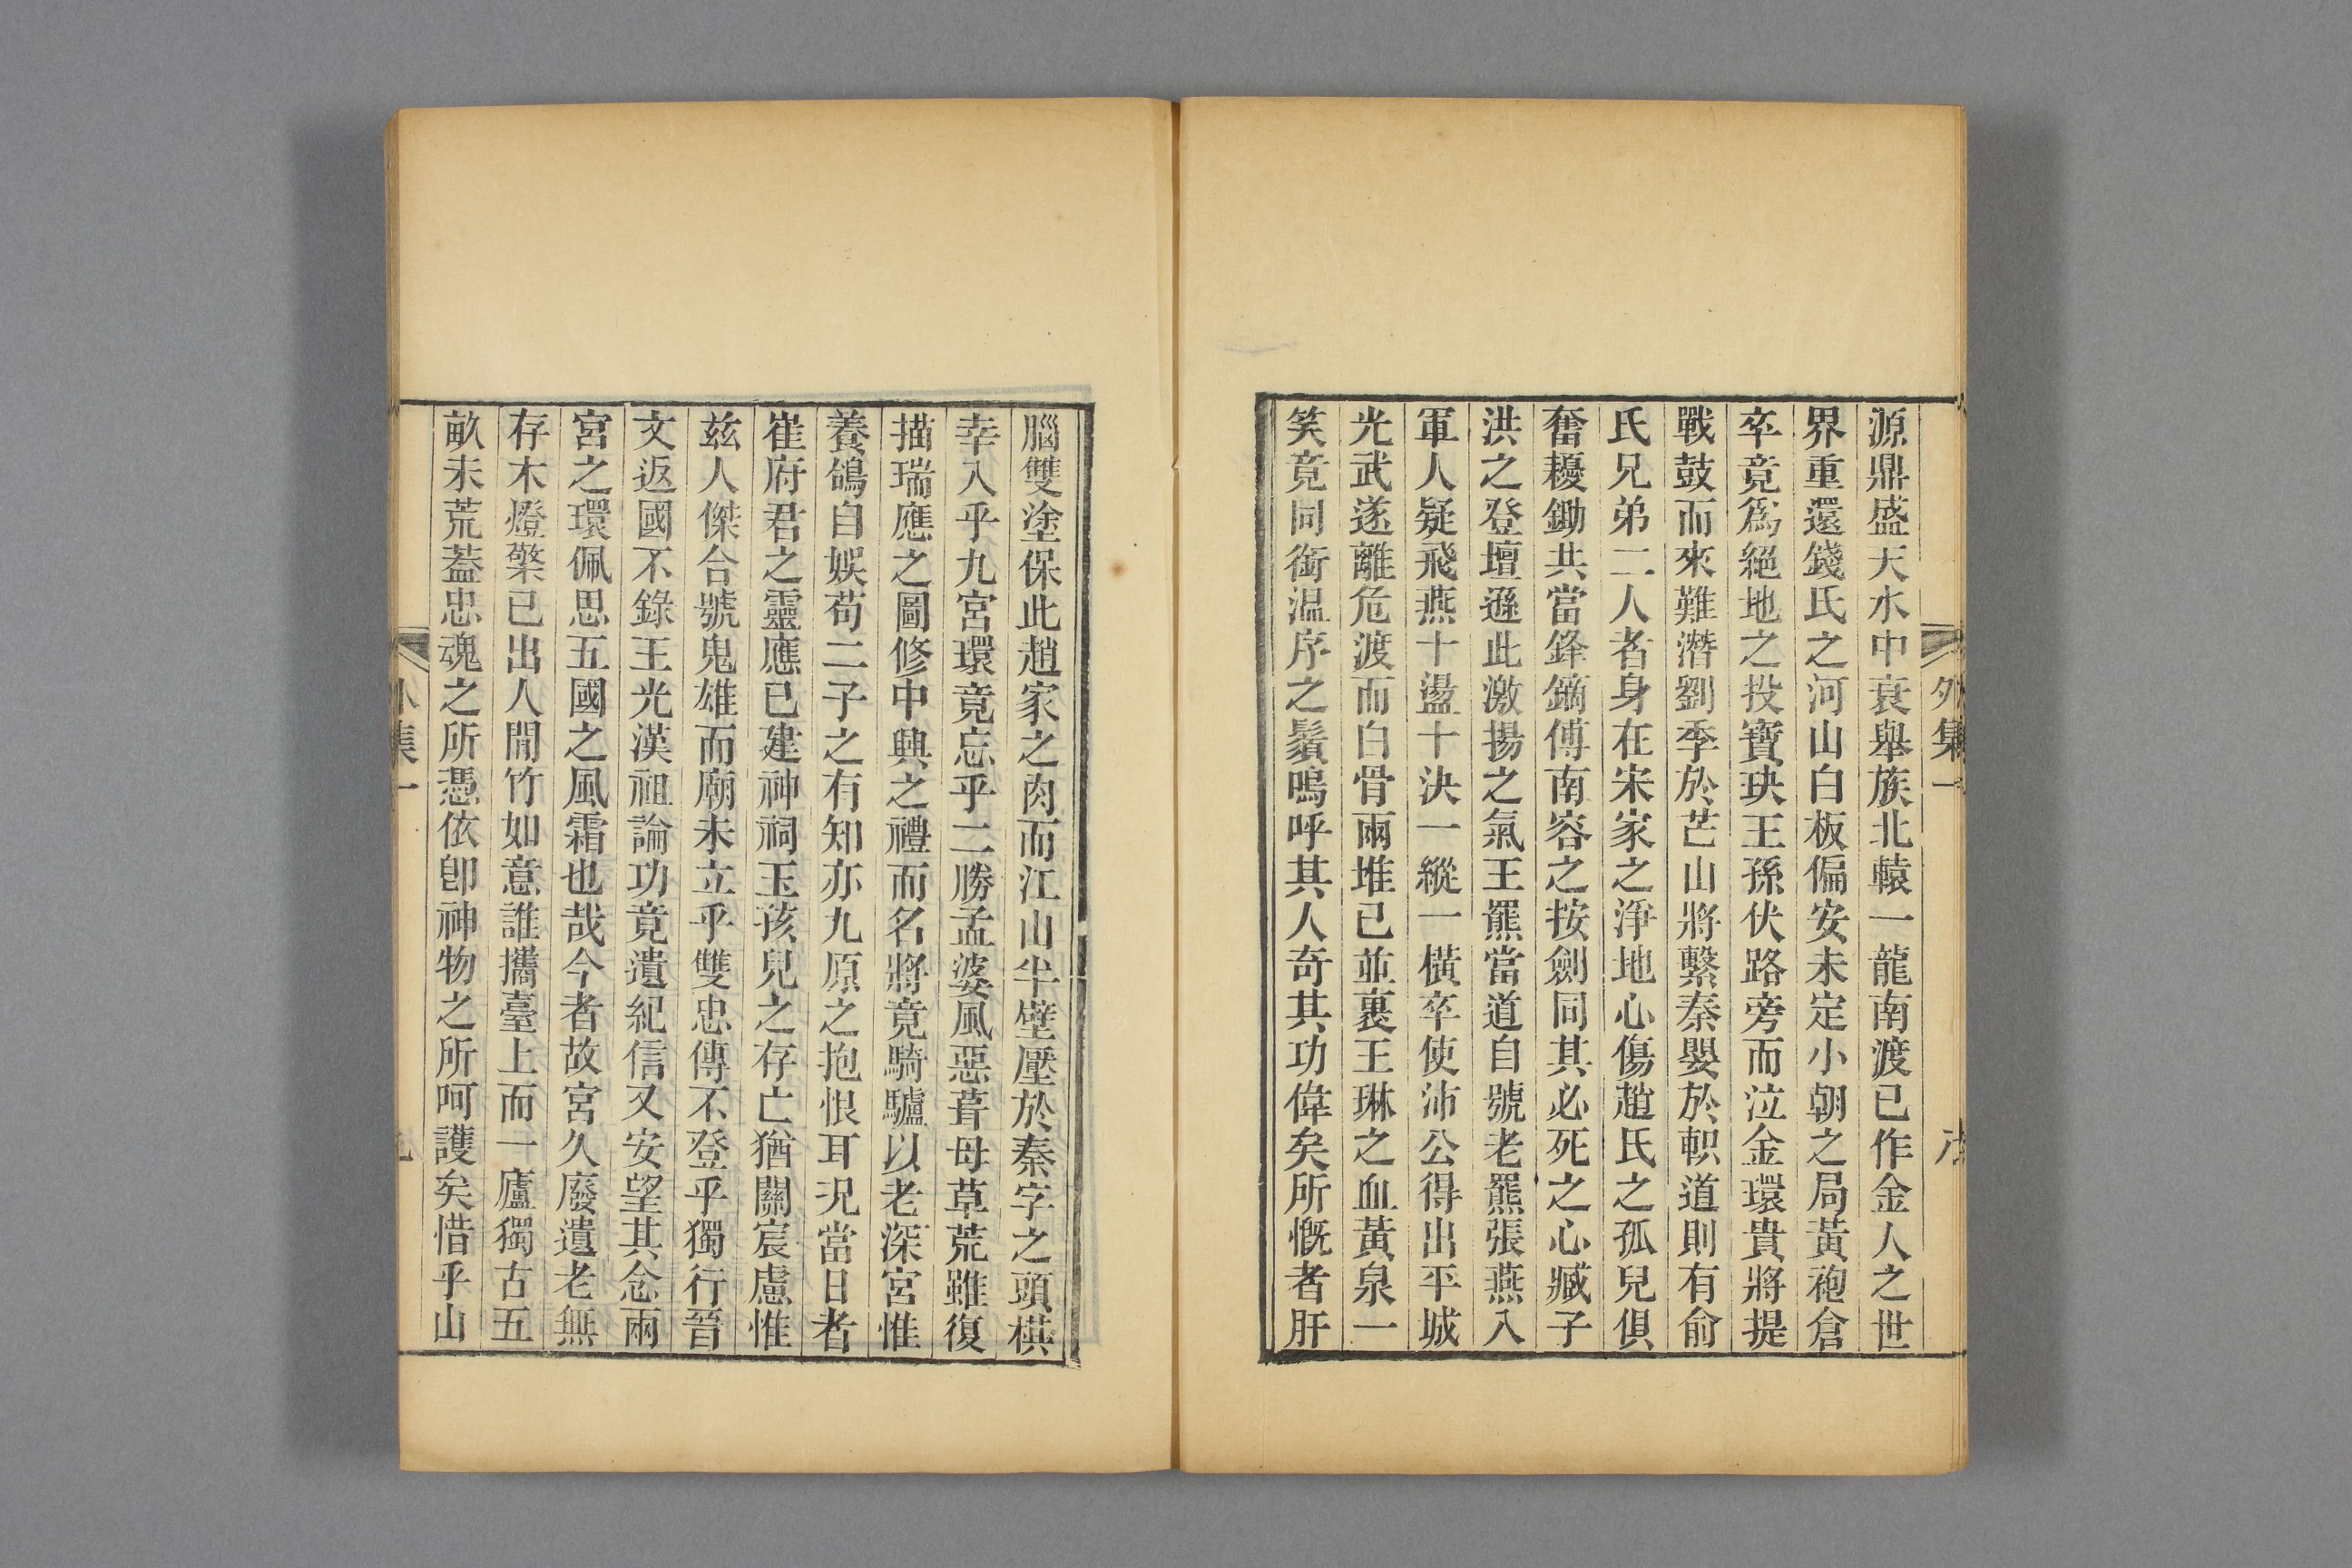 外集一
源鼎盛天水中衰舉族北轅一龍南渡已作金人之世
界重還錢氏之河山白板偏安未定小朝之局黃袍倉
卒竟爲絕地之投寶玦王孫伏路旁而泣金環貴將提
戰鼓而來難潛劉季於芒山將繫秦嬰於軹道則有俞
氏兄弟二人者身在宋家之淨地心傷趙氏之孤兒俱
奮耰鋤共當鋒鏑傅南容之按劍同其必死之心臧子
洪之登壇遜此激揚之氣王羆當道自號老羆張燕入
軍人疑飛燕十盪十決一縱一橫卒使沛公得出平城
光武遂離危渡而白骨兩堆已並裹王琳之血黃泉一
笑竟同銜温序之鬚嗚呼其人奇其功偉矣所慨者肝
腦雙塗保此趙家之肉而江山半壁壓於秦字之頭棋
幸入乎九宮環竟忘乎二勝孟婆風惡葺母草荒雖復
描瑞應之圖修中興之禮而名將竟騎驢以老深宮惟
養鴿自娛苟二子之有知亦九原之抱恨耳況當日者
崔府君之靈應已建神祠玉孩兒之存亡猶關宸慮惟
兹人傑合號鬼雄而廟未立乎雙忠傳不登乎獨行晉
文返國不錄王光漢祖論功竟遺紀信又安望其念兩
宮之環佩思五國之風霜也哉今者故宮久廢遺老無
存木燈檠已出人閒竹如意誰攜臺上而一廬獨古五
畝未荒蓋忠魂之所憑依卽神物之所呵護矣惜乎山
集一